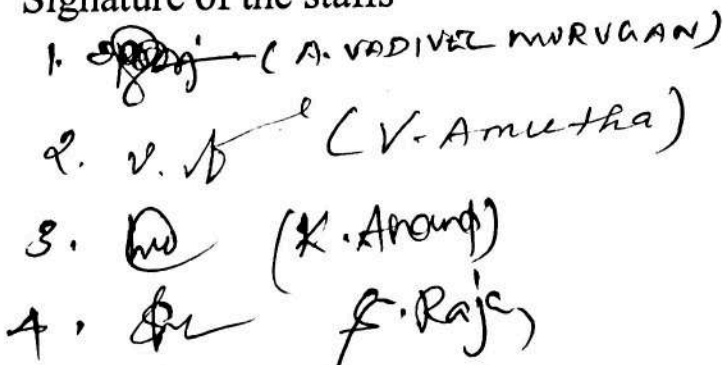 Signature of the staffs
1. (A. VADIVEL MURUGAN)
2. V. (V. Amutha)
3. (K. Anand)
4. S. Raja,